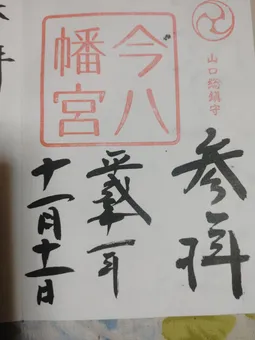 山口惣鎮守
参拝
今八
幡宮
平成 一年
十一月十一日